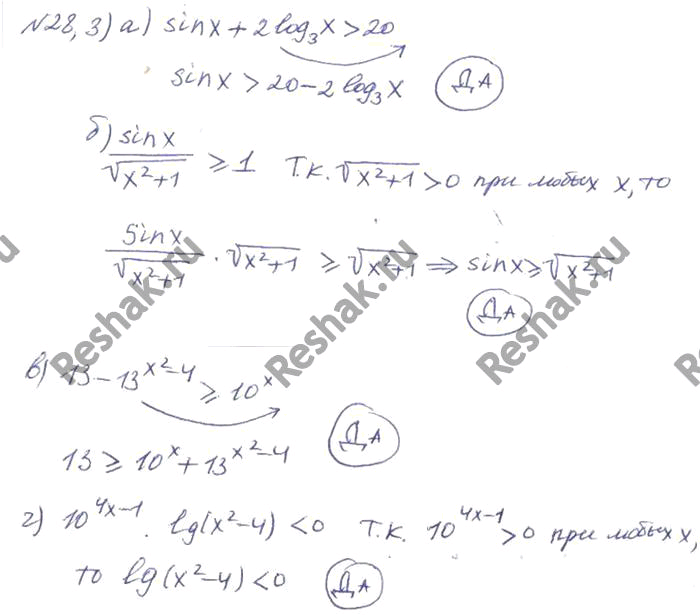 N28,3) а) sinx + 2log₃x > 20
sinx > 20 - 2log₃x ДА
б) sinx/√(x²+1) ≥ 1 Т.к. √(x²+1) > 0 при любых x, то
sinx/√(x²+1) · √(x²+1) ≥ √(x²+1) ⇒ sinx ≥ √(x²+1)
ДА
в) 13 - 13^(x²-4) ≥ 10^x
13 ≥ 10^x + 13^(x²-4) ДА
г) 10^(4x-1) · lg(x²-4) < 0 Т.к. 10^(4x-1) > 0 при любых x,
то lg(x²-4) < 0 ДА
Reshak.ru
Reshak.ru
Reshak.ru